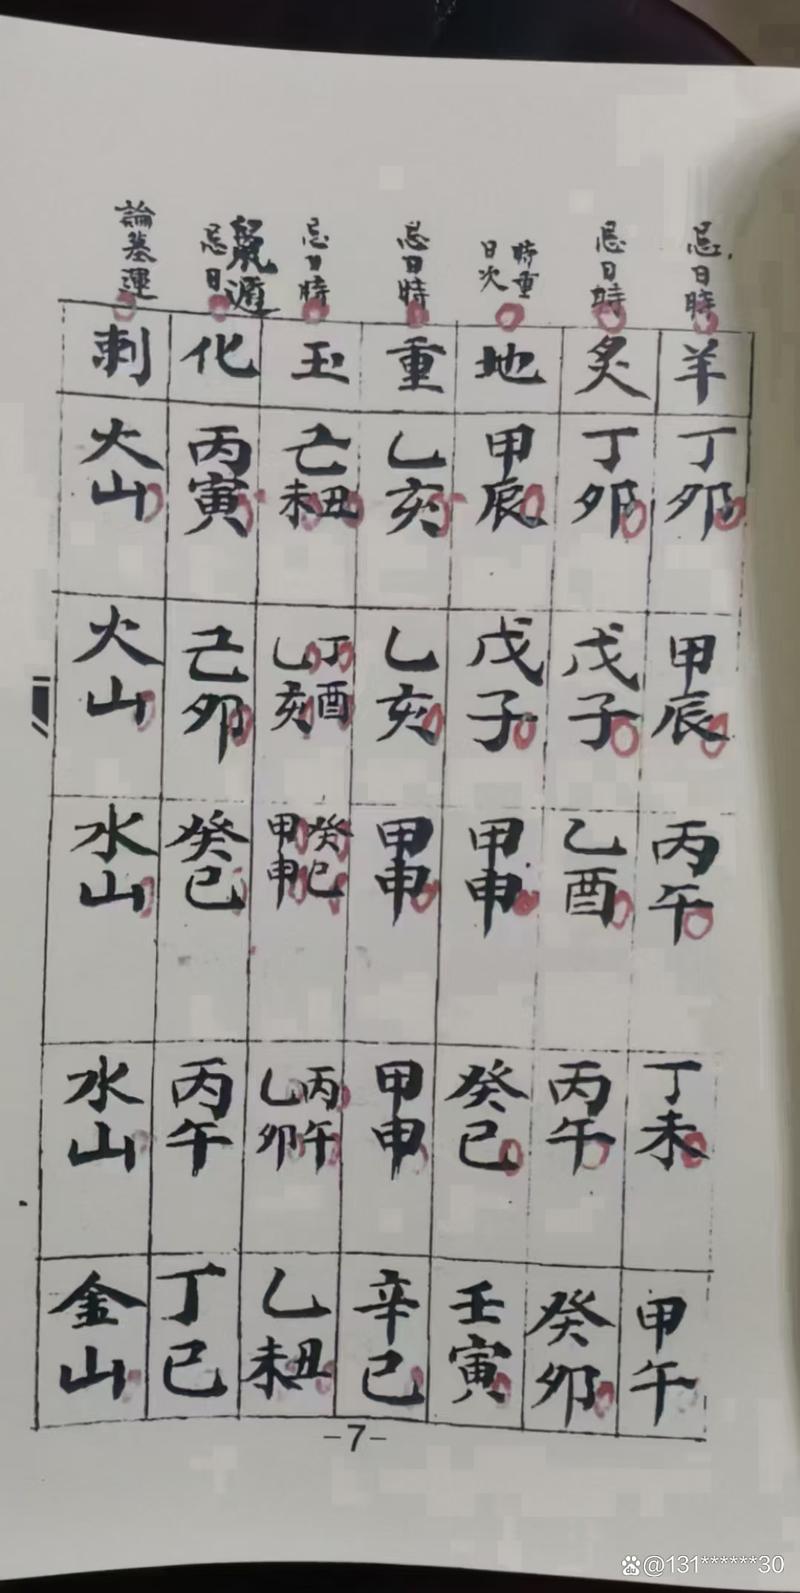 忌日時
羊
丁卯
甲辰
丙午
丁未
甲午
忌日時
炙
丁卯
戊子
乙酉
丙午
癸卯
時重
日次
地
甲辰
戊子
甲申
癸巳
壬寅
忌日時
重
乙亥
乙亥
甲申
甲申
辛巳
忌日時
玉
己丑未
丁酉
乙亥
癸巳
甲申
丙午
乙卯
乙丑未
鼠遁
忌日
化
丙寅
己卯
癸巳
丙午
丁巳
論墓運
刺
火山
火山
水山
水山
金山
-7-
@131******30